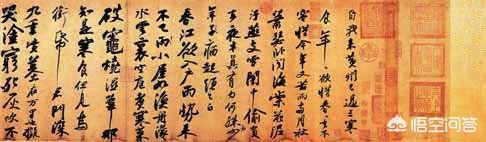 自我來黃州已過三寒
食年〻欲惜春春去不
容惜今年又苦雨兩月秋
蕭瑟卧聞海棠花泥
汙燕支雪闇中偷負
去夜半真有力何殊少
年子病起頭已白
春江欲入戶雨勢來
不已雨小屋如漁舟濛〻
水雲裏空庖煮寒菜
破竈燒濕葦那
知是寒食但見烏
銜帋君門深
九重墳墓在万里也擬
哭塗窮死灰吹不
悟空问答